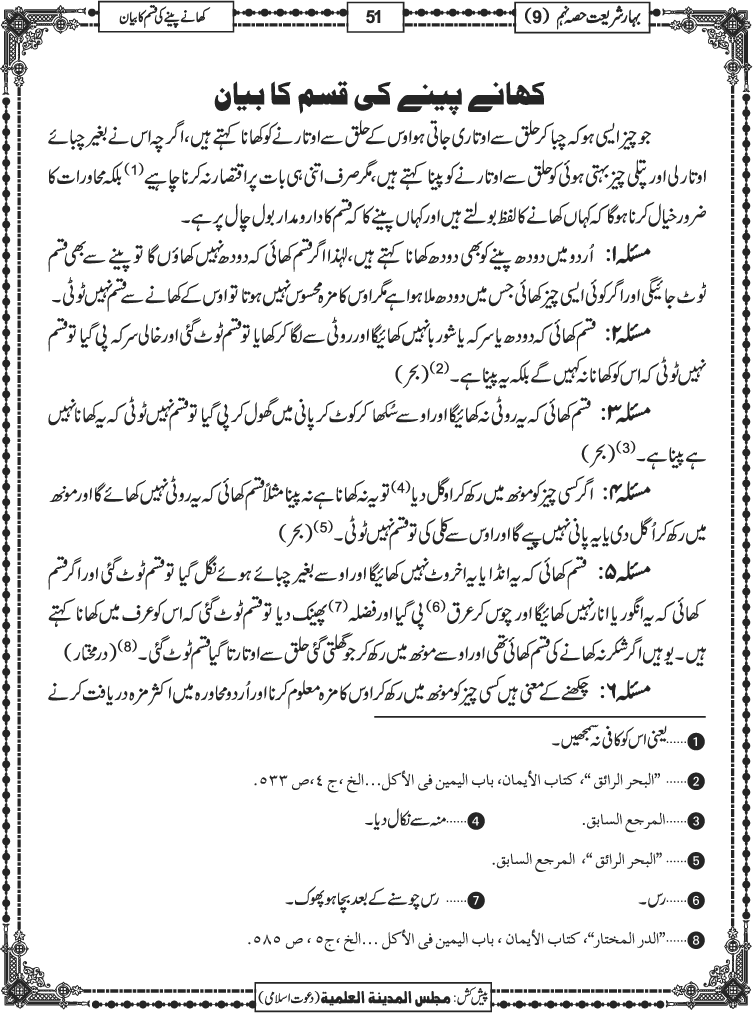 بہارِ شریعت حصہ نہم (9)
51
کھانے پینے کی قسم کا بیان
کھانے پینے کی قسم کا بیان
جو چیز ایسی ہو کہ چبا کر حلق سے اوتاری جاتی ہو اوس کے حلق سے اوتارنے کو کھانا کہتے ہیں، اگرچہ اس نے بغیر چبائے
اوتار لی اور پتلی چیز بہتی ہوئی کو حلق سے اوتارنے کو پینا کہتے ہیں، مگر صرف اتنی ہی بات پر اقتصار نہ کرنا چاہیے (1) بلکہ محاورات کا
ضرور خیال کرنا ہوگا کہ کہاں کھانے کا لفظ بولتے ہیں اور کہاں پینے کا کہ قسم کا دارومدار بول چال پر ہے۔
مسئلہ ۱: اُردو میں دودھ پینے کو بھی دودھ کھانا کہتے ہیں، لہٰذا اگر قسم کھائی کہ دودھ نہیں کھاؤں گا تو پینے سے بھی قسم
ٹوٹ جائیگی اور اگر کوئی ایسی چیز کھائی جس میں دودھ ملا ہوا ہے مگر اوس کا مزہ محسوس نہیں ہوتا تو اوس کے کھانے سے قسم نہیں ٹوٹی۔
مسئلہ ۲: قسم کھائی کہ دودھ یا سرکہ یا شوربا نہیں کھائیگا اور روٹی سے لگا کر کھایا تو قسم ٹوٹ گئی اور خالی سرکہ پی گیا تو قسم
نہیں ٹوٹی کہ اس کو کھانا نہ کہیں گے بلکہ یہ پینا ہے۔ (2) (بحر)
مسئلہ ۳: قسم کھائی کہ یہ روٹی نہ کھائیگا اور اوسے سُکھا کر کوٹ کر پانی میں گھول کر پی گیا تو قسم نہیں ٹوٹی کہ یہ کھانا نہیں
ہے پینا ہے۔ (3) (بحر)
مسئلہ ۴: اگر کسی چیز کو مونھ میں رکھ کر اوگل دیا (4) تو یہ نہ کھانا ہے نہ پینا مثلاً قسم کھائی کہ یہ روٹی نہیں کھائے گا اور مونھ
میں رکھ کر اُگل دی یا یہ پانی نہیں پیے گا اور اوس سے کلی کی تو قسم نہیں ٹوٹی۔ (5) (بحر)
مسئلہ ۵: قسم کھائی کہ یہ انڈا یا یہ اخروٹ نہیں کھائیگا اور اوسے بغیر چبائے ہوئے نگل گیا تو قسم ٹوٹ گئی اور اگر قسم
کھائی کہ یہ انگور یا انار نہیں کھائیگا اور چوس کر عرق (6) پی گیا اور فضلہ (7) پھینک دیا تو قسم ٹوٹ گئی کہ اس کو عرف میں کھانا کہتے
ہیں۔ یوہیں اگر شکر نہ کھانے کی قسم کھائی تھی اور اوسے مونھ میں رکھ کر جو گھلتی گئی حلق سے اوتارتا گیا قسم ٹوٹ گئی۔ (8) (درمختار)
مسئلہ ۶: چکھنے کے معنی ہیں کسی چیز کو مونھ میں رکھ کر اوس کا مزہ معلوم کرنا اور اُردو محاورہ میں اکثر مزہ دریافت کرنے
1 ......یعنی اس کو کافی نہ سمجھیں۔
2 ......"البحر الرائق"، کتاب الأیمان، باب الیمین فی الأکل...الخ، ج ٤، ص ٥٣٣.
3 ......المرجع السابق.
4 ......منہ سے نکال دیا۔
5 ......"البحر الرائق"، المرجع السابق.
6 ......رس۔
7 ......رس چوسنے کے بعد بچا ہو پھوک۔
8 ......"الدر المختار"، کتاب الأیمان، باب الیمین فی الأکل...الخ، ج٥، ص ٥٨٥.
پیش کش: مجلس المدینة العلمیة (دعوت اسلامی)